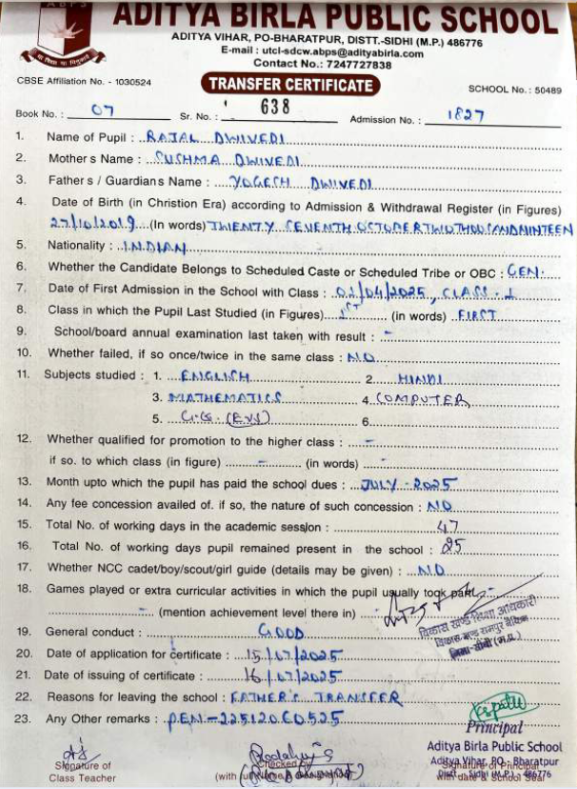 ABPS
ADITYA BIRLA PUBLIC SCHOOL
ADITYA VIHAR, PO-BHARATPUR, DISTT.-SIDHI (M.P.) 486776
E-mail : utcl-sdcw.abps@adityabirla.com
Contact No.: 7247727838
CBSE Affiliation No. - 1030524
TRANSFER CERTIFICATE
SCHOOL No. : 50489
Book No. : 07 Sr. No. : 638 Admission No. : 1827
1. Name of Pupil : RAJAL DWIVEDI
2. Mother s Name : SUSHMA DWIVEDI
3. Father s / Guardian s Name : YOGESH DWIVEDI
4. Date of Birth (in Christion Era) according to Admission & Withdrawal Register (in Figures)
27/10/2019 (In words) TWENTY SEVENTH OCTOBER TWO THOUSAND NINTEEN
5. Nationality : INDIAN
6. Whether the Candidate Belongs to Scheduled Caste or Scheduled Tribe or OBC : GEN.
7. Date of First Admission in the School with Class : 02/04/2025, CLASS - I
8. Class in which the Pupil Last Studied (in Figures) 1st (in words) FIRST
9. School/board annual examination last taken with result : -
10. Whether failed, if so once/twice in the same class : NO
11. Subjects studied : 1. ENGLISH 2. HINDI
3. MATHEMATICS 4. COMPUTER
5. G.S. (EVS) 6.
12. Whether qualified for promotion to the higher class : -
if so. to which class (in figure) - (in words) -
13. Month upto which the pupil has paid the school dues : JULY - 2025
14. Any fee concession availed of. if so, the nature of such concession : NO
15. Total No. of working days in the academic session : 47
16. Total No. of working days pupil remained present in the school : 25
17. Whether NCC cadet/boy/scout/girl guide (details may be given) : NO
18. Games played or extra curricular activities in which the pupil usually took part
- (mention achievement level there in)
विकास खण्ड शिक्षा अधिकारी
विकास खण्ड रामपुर नैकिन
जिला-सीधी (म.प्र.)
19. General conduct : GOOD
20. Date of application for certificate : 15/07/2025
21. Date of issuing of certificate : 16/07/2025
22. Reasons for leaving the school : FATHER'S TRANSFER
23. Any Other remarks : PEN - 22512060525
Principal
Aditya Birla Public School
Aditya Vihar, PO - Bharatpur
Distt - Sidhi (M.P.) 486776
Signature of Principal
with date & School Seal
Signature of
Class Teacher
Checked by